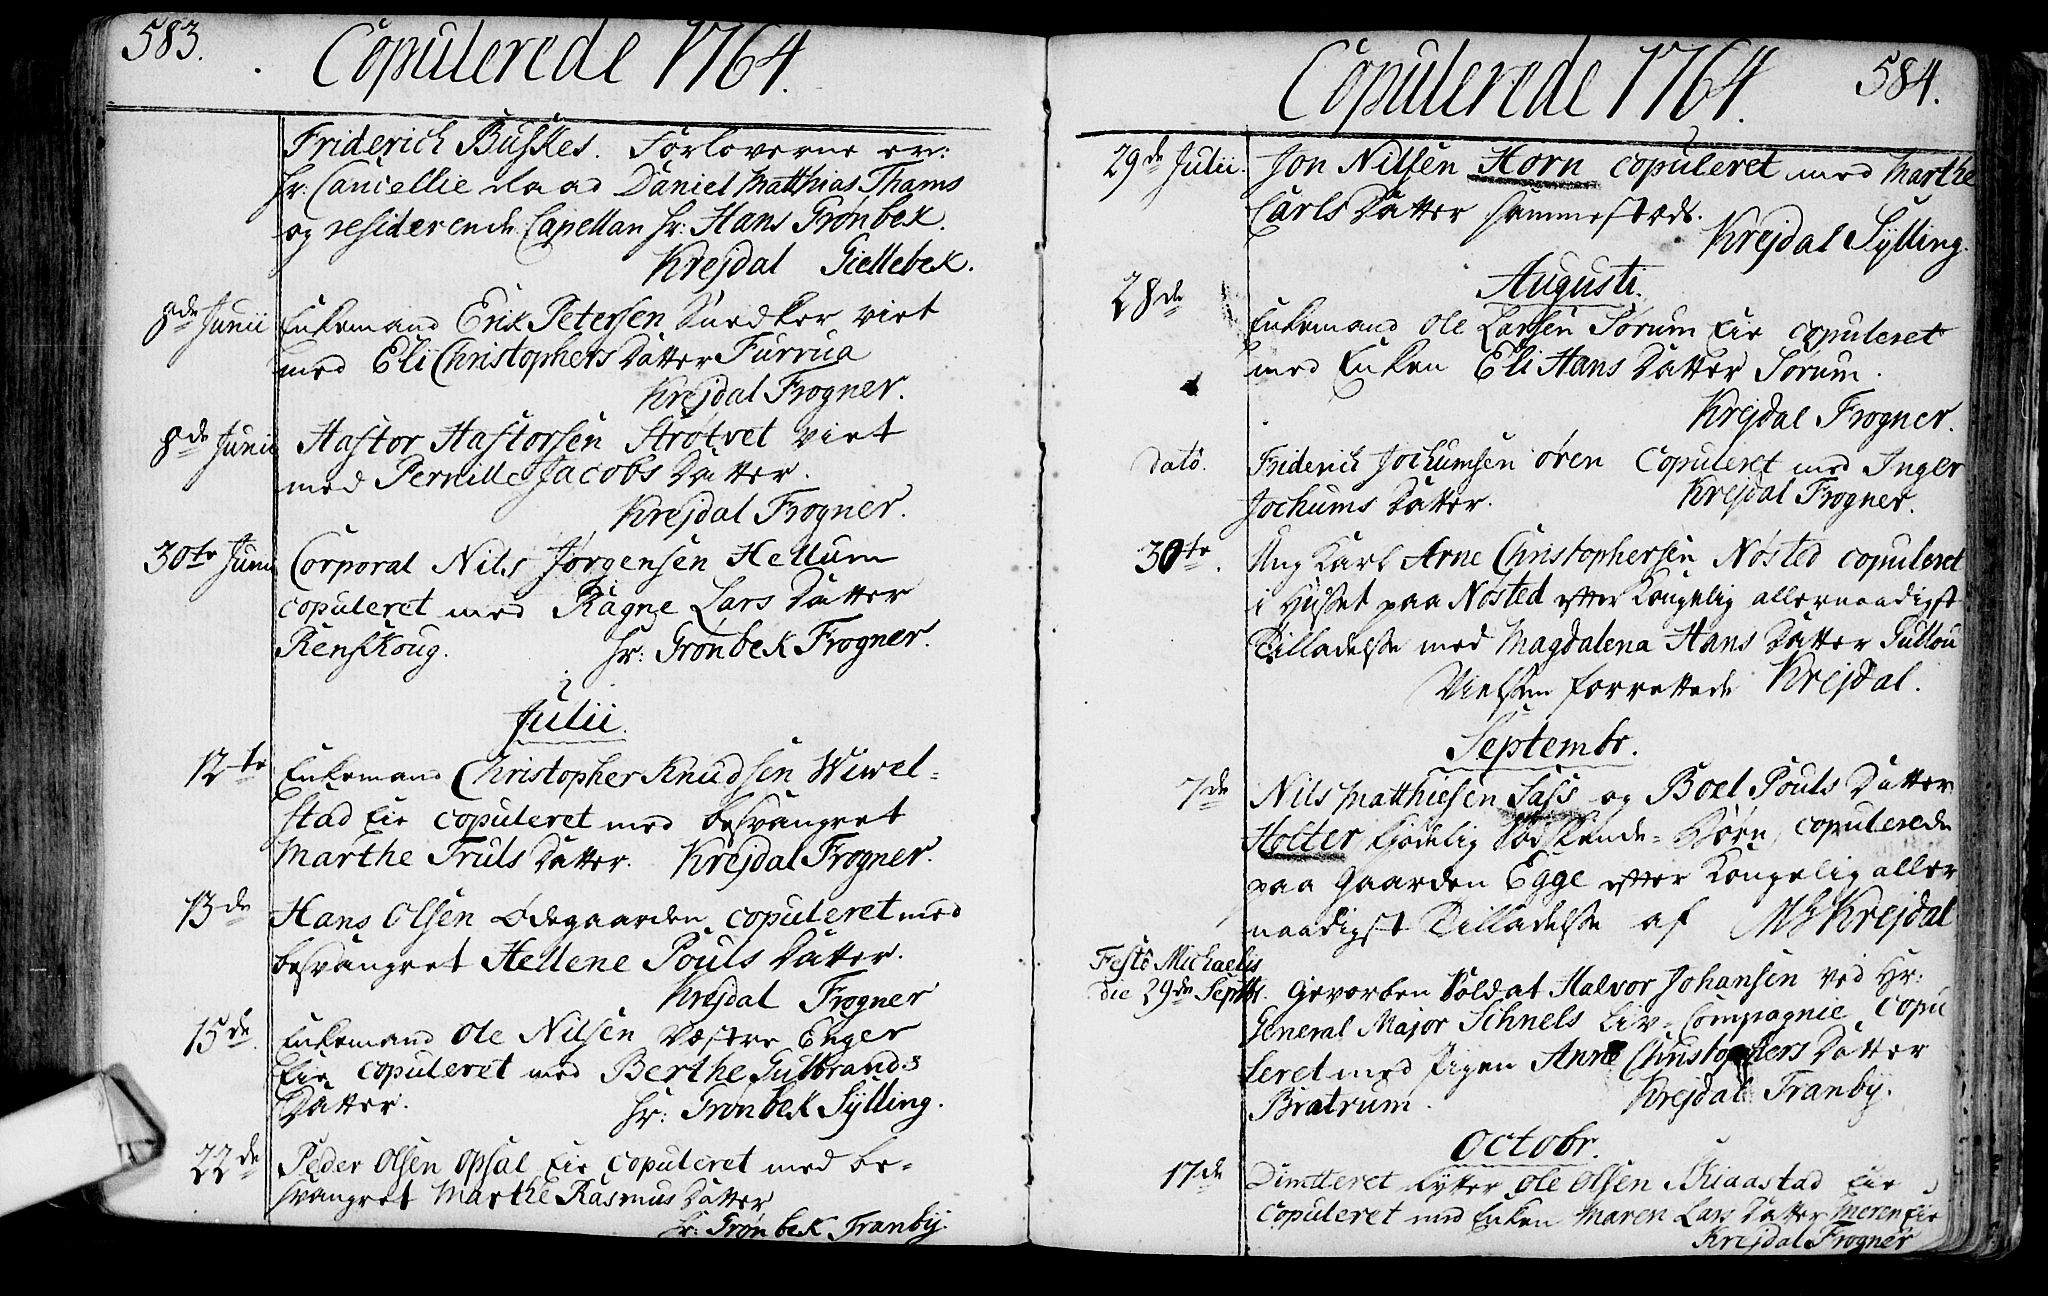 583. Copulerede 1764.
Friderich Buskes. Forloverne er:
Hr: Cancellie Raad Daniel Matthias Thams
og residerende Capellan Hr: Hans Grønbek.
Krejdal Giellebek.
8de Junii Enkemand Erik Petersen Snedker viet
med Eli Christophers Datter Furrua
Krejdal Frogner.
8de Junii Hastor Hastorsen Strøtvet viet
med Pernille Jacobs Datter.
Krejdal Frogner.
30te Junii Corporal Nils Jørgensen Hellum
copuleret med Ragne Lars Datter
Renskoug. Hr: Grønbek Frogner.
Julii.
12te Enkemand Christopher Knudsen Wiwel-
stad Eie copuleret med besvangret
Marthe Truls Datter. Krejdal Frogner.
13de Hans Olsen Ødegaarden copuleret med
besvangret Hellene Pouls Datter.
Krejdal Frogner
15de. Enkemand Ole Nilsen Vestre Enger
Eie copuleret med Berthe Gulbrands
Datter. Hr: Grønbek Sylling.
22de Peder Olsen Opsal Eie copuleret med be-
svangret Marthe Rasmus Datter
Hr: Grønbek Franby.
Copulerede 1764. 584.
29de Julii. Jon Nilsen Horn copuleret med Marthe
Carls Datter sammesteds.
Krejdal Sylling.
Augusti.
28de Enkemand Ole Larsen Sørum Eie copuleret
med Enken Eli Hans Datter Sørum.
Krejdal Frogner.
Dato. Friderich Jochumsen Øren copuleret med Inger
Jochums Datter. Krejdal Frogner.
30te. Ung Karl Arne Christophersen Nøsted copuleret
i Huset paa Nøsted efter Kongelig allernaadigst
Tilladelse med Magdalena Hans Datter Gullou
Vielsen forrettede Krejdal.
Septembr.
7de Nils Matthiesen Sass og Boel Pouls Datter
Holter kiødelig Sødskende-Børn, copulerede
paa Gaarden Egge efter Kongelig aller
naadigst Tilladelse af MS Krejdal
Festo Michaelis
die 29de Septbr. Gevorben Soldat Halvor Johansen ved Hr:
General Major Schnels Liv-Compagnie copu
leret med Pigen Anne Christophers Datter
Bratrum. Krejdal Franby.
Octobr.
17de Dimtteret Rytter Ole Olsen Eie
copuleret med Enken Maren Lars Datter Meren Eie
Krejdal Frogner